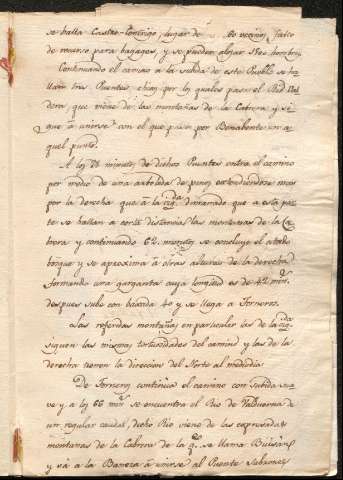 se halla Castro-Contrigo, lugar de 80 vecinos, falto
de recurso para bagages, y se pueden alojar hombres
Continuando el camino a la salida de este Pueblo se ha
llan tres Puentes chicos por los quales pasa el Rio
dera que viene de las montañas de la Cabrera y si
gue á unirse con el que pasa por Benabente en a
quel punto.
A los minutos de dichos Puentes entra el camino
por medio de una arboleda de pinos extendiendose mas
por la derecha que á la izqda. dimanado que a esta par
te se hallan a corta distancia las montañas de la Ca
brera y continuando 62 minutos se concluye el
bosque y se aproxima á otras alturas de la derecha
formando una garganta cuya longitud es de 42 mins.
despues sube con baxada 40 y se llega a Torneros.
Las referidas montañas en particular las de la izqda.
siguen las mismas tortuosidades del camino y las de la
derecha tienen la direccion del Norte al mediodia
De Torneros continúa el camino con subida sua
ve y a los 66 mins. se encuentra el Rio de Valduerna de
un regular caudal, dicho Rio viene de las expresadas
montañas de la Cabrera de la q.e se llama
y vá a la Bañeza á unirse al Puente